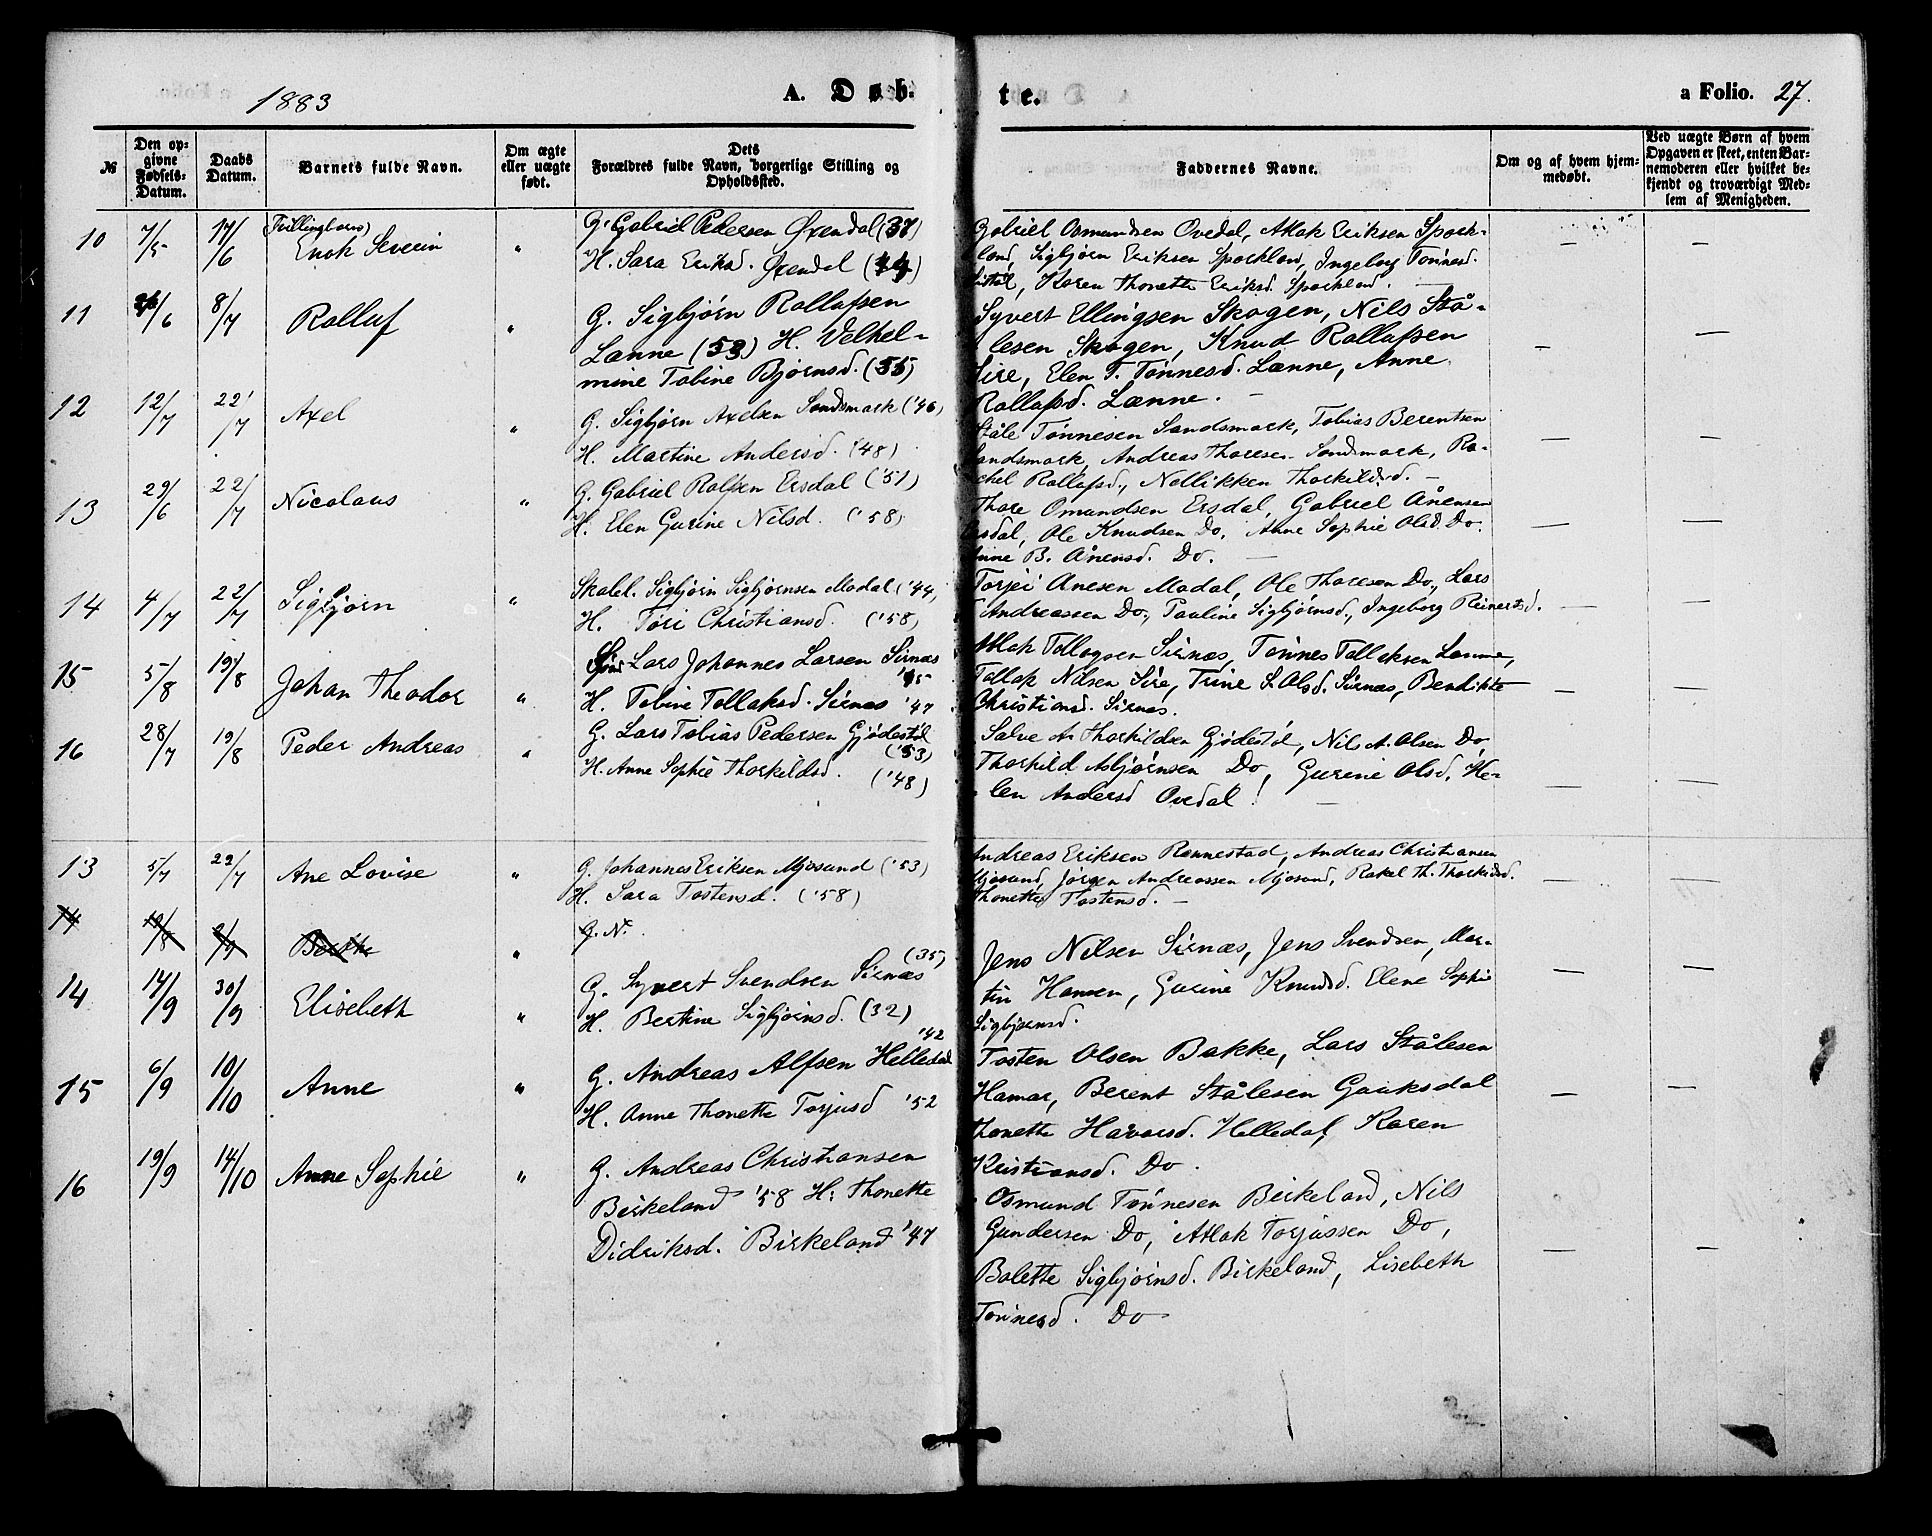 1883
A. Døb-
te.
a Folio. 27.
№
Den op-
givne
Fødsels-
Datum.
Daabs
Datum.
Barnets fulde Navn.
Om ægte
eller uægte
født.
Dets
Forældres fulde Navn, borgerlige Stilling og
Opholdssted.
Faddernes Navne.
Om og af hvem hjem-
medøbt.
Ved uægte Børn af hvem
Opgaven er skeet, enten Bar-
nemoderen eller hvilket be-
kjendt og troværdigt Med-
lem af Menigheden.
10 7/5 17/6 (Tvillingbarn)
Enok Severin "
G. Gabriel Pedersen Øxendal (37)
H. Sara Eriksd. Øxendal
Gabriel Osmundsen Ovedal, Atlak Eriksen Spork-
land, Sigbjørn Eriksen Sporkland, Ingeborg Tønnesd.
Karen Thonette Eriksd. Sporkland. —
11 8/7 Rolluf "
G. Sigbjørn Rollafsen
Lænne (53) H. Velhel-
mine Tobine Bjørnsd. (55)
Syvert Ellingsen Skogen, Nils Stå-
lesen Skogen, Knud Rollafsen
Sire, Elen T. Tønnesd. Lænne, Anne
Rollafsd. Lænne. —
12 12/7 22/7 Axel "
G. Sigbjørn Axelsen Sandsmark ('46)
H. Martine Andersd. ('48)
Ståle Tønnesen Sandsmark, Tobias Berentsen
Sandsmark, Andreas Thoresen Sandsmark, Ra-
chel Rollafsd., Nellikken Thorkildsd. —
13 29/6 22/7 Nicolaus "
G. Gabriel Rolfsen Ersdal ('51)
H. Elen Gurine Nilsd. ('58)
Thore Omundsen Ersdal, Gabriel Ånensen
Ersdal, Ole Knudsen Do, Anne Sophie Olsd. Do.
Anne B. Ånensd. Do. —
14 4/7 22/7 Sigbjørn "
Skolel. Sigbjørn Sigbjørnsen Modal ('44)
H. Tori Christiansd. ('58)
Torjei Anesen Modal, Ole Thoresen Do., Lars
Andreassen Do., Pauline Sigbjørnsd., Ingeborg Reinertsd.
15 5/8 19/8 Johan Theodor "
Lars Johannes Larsen Sirnæs
'45
H. Tobine Tollaksd. Sirnæs '47
Atlak Tollagsen Sirnæs, Tønnes Tollaksen Lænne,
Tollak Nilsen Sire, Trine S. Olsd. Sirnæs, Bendikte
Christiansd. Sirnæs.
16 28/7 19/8 Peder Andreas "
G. Lars Tobias Pedersen Gjødestøl
('53)
H. Anne Sophie Thorkildsd. ('48)
Salve A. Thorkildsen Gjødestøl, Nils A. Olsen Do
Thorkild Asbjørnsen Do, Gurine Olsd. He-
len Andersd Ovedal. —
13 5/7 22/7 Ane Lovise "
G. Johannes Eriksen Mjosund ('53)
H. Sara Tostensd. ('58)
Andreas Eriksen Rennestad, Andreas Christiansen
Mjosund, Jørgen Andreassen Mjosund, Rakel Th. Thorkildsd.
Thonette Tostensd. —
14 "
G. N.
14 14/9 30/9 Elisebeth "
(35)
G. Syvert Svendsen Sirnæs
H. Bertine Sigbjørnsd. (32)
Jens Nilsen Sirnæs, Jens Svendsen, Mar-
tin Hansen, Gurine Knudsd. Elene Sophie
Sigbjørnsd.
15 6/9 10/10 Anne "
'42
G. Andreas Alfsen Helledal
H. Anne Thonette Torjusd '52
Tosten Olsen Bakke, Lars Stålesen
Hamar, Berent Stålesen Gauksdal
Thonette Havarsd. Helledal, Karen
Kristiansd. Do.
16 19/9 14/10 Anne Sophie "
G. Andreas Christiansen
Birkeland '58 H. Thonette
Didriksd. Birkeland '47
Osmund Tønnesen Birkeland, Nils
Gundersen Do, Atlak Torjussen Do,
Bolette Sigbjørnsd. Birkeland, Lisebeth
Tønnesd. Do